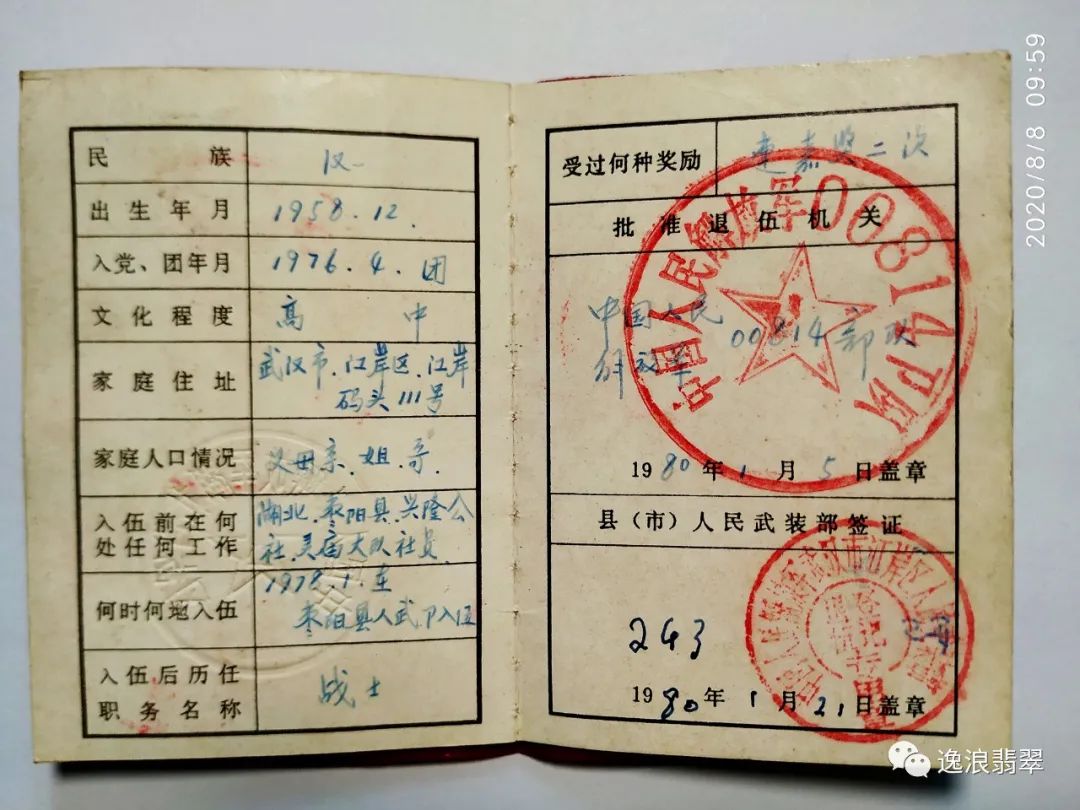 民族 汉
出生年月 1958.12.
入党、团年月 1976.4.团
文化程度 高中
家庭住址 武汉市.江岸区.江岸
码头111号
家庭人口情况 父母亲.姐.哥.
入伍前在何 湖北.枣阳县.兴隆公
处任何工作 社.灵庙大队社员
何时何地入伍 1978.1.在
枣阳县人武.卩入伍
入伍后历任 战士
职务名称
受过何种奖励 连嘉奖二次
批准退伍机关
中国人民
解放军 00814部队
中国人民解放军00814部队
1980年1月5日盖章
县(市)人民武装部签证
243
1980年1月21日盖章
2020/8/8 09:59
逸浪翡翠